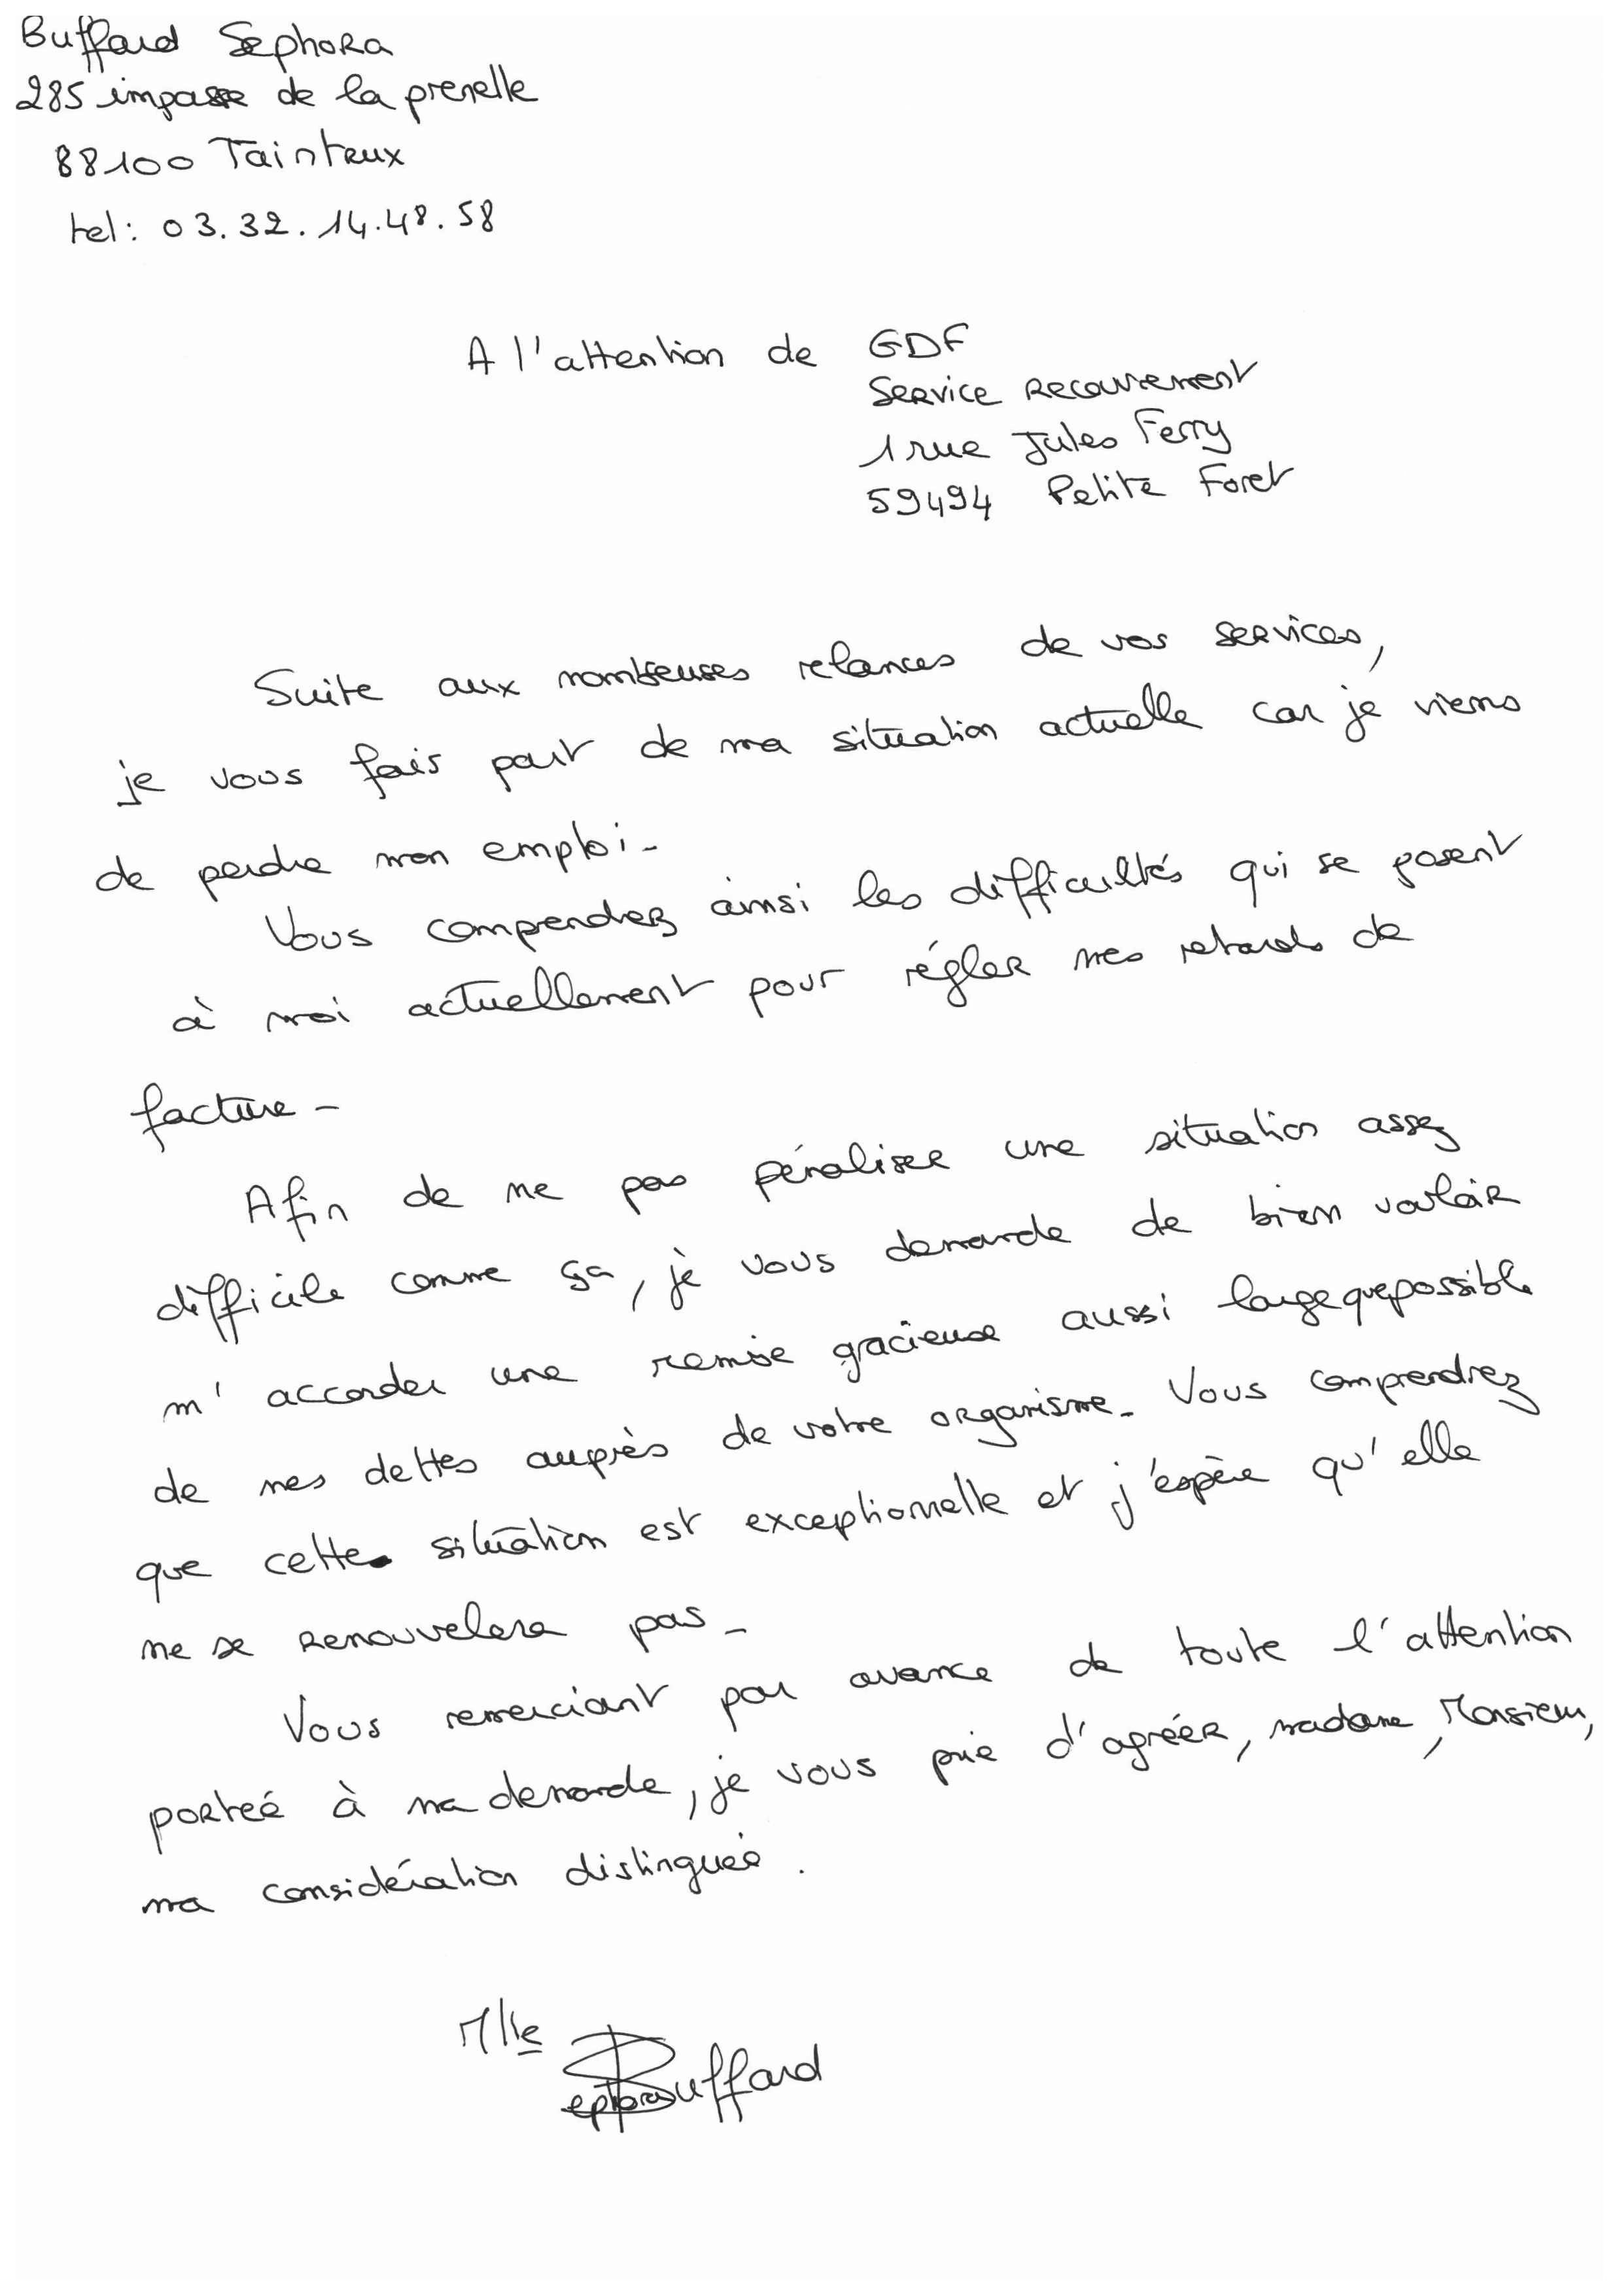 Buffard Sephora
285 impasse de la prenelle
88100 Taintrux
tel : 03.32.14.48.58
A l'attention de GDF
Service Recouvrement
1 rue Jules Ferry
59494 Petite Foret
Suite aux nombreuses relances de vos services,
je vous fais part de ma situation actuelle car je viens
de perdre mon emploi.
Vous comprendrez ainsi les difficultés qui se posent
à moi actuellement pour régler mes retards de
facture.
Afin de ne pas pénaliser une situation assez
difficile comme ça, je vous demande de bien vouloir
m'accorder une remise gracieuse aussi large que possible
de mes dettes auprès de votre organisme. Vous comprendrez
que cette situation est exceptionnelle et j'espère qu'elle
ne se renouvelera pas.
Vous remerciant par avance de toute l'attention
porteé à ma demande, je vous prie d'agréer, madame, Monsieur,
ma considération distinguée.
Mlle
Buffard